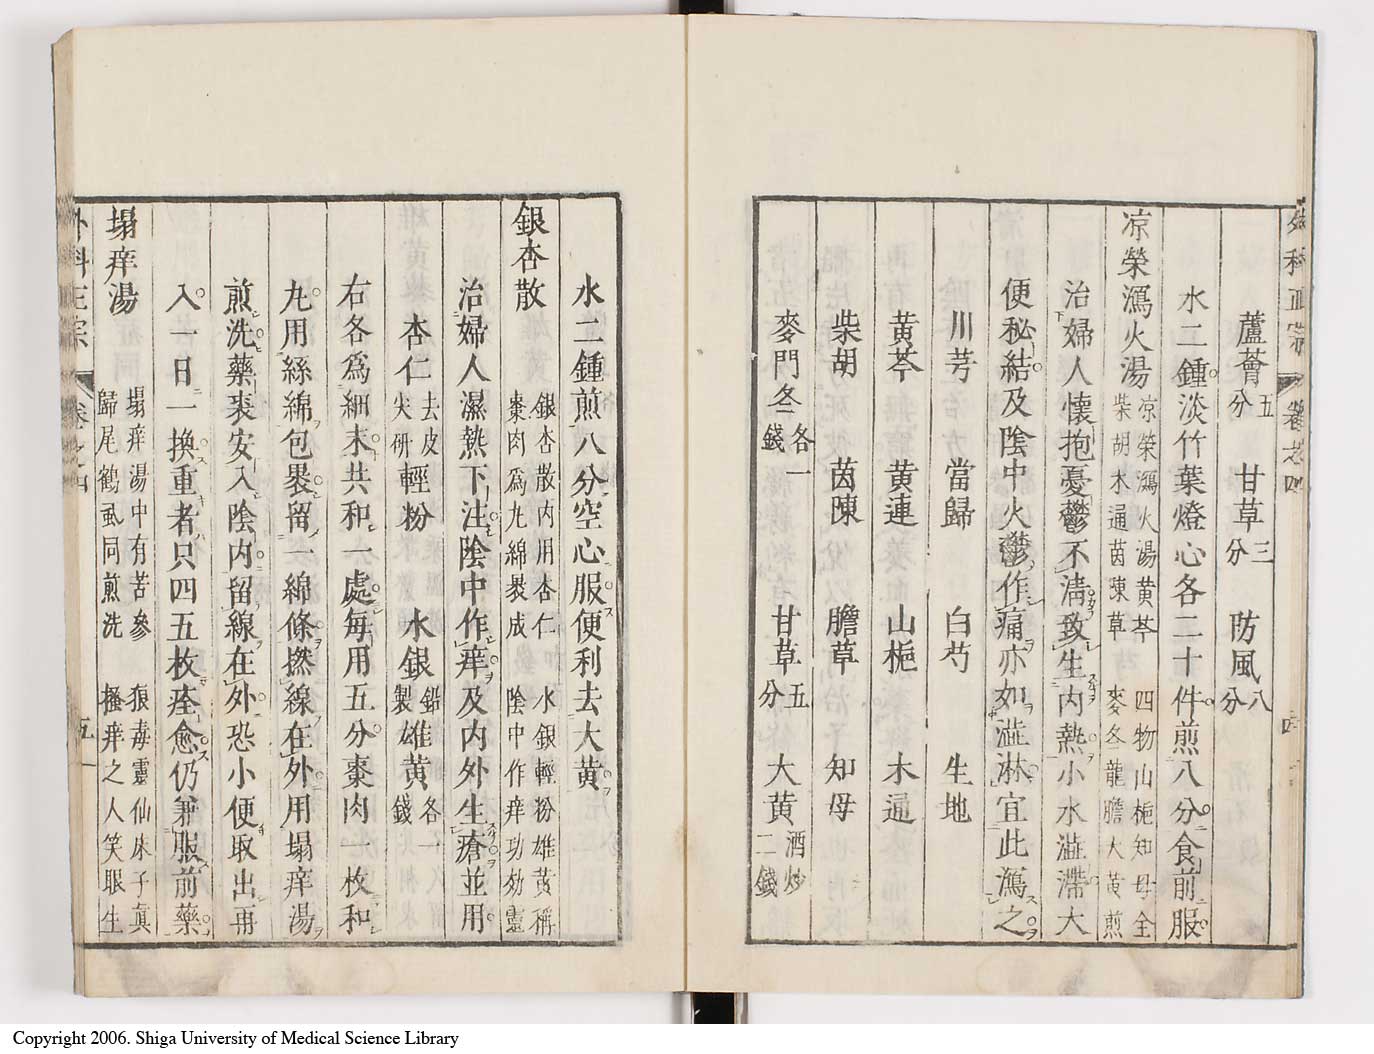 外科正宗 卷之四
蘆薈五分 甘草三分 防風八分
水二鍾淡竹葉燈心各二十件煎八分食前服
涼榮瀉火湯 涼榮瀉火湯黃芩 四物山梔知母全
柴胡木通茵陳草 麥冬龍膽大黃煎
治婦人懷抱憂鬱不清致生內熱小水澁滯大
便秘結及陰中火鬱作痛亦如澁淋宜此瀉之
川芎 當歸 白芍 生地
黃芩 黃連 山梔 木通
柴胡 茵陳 膽草 知母
麥門冬各一錢 甘草五分 大黃酒炒二錢
水二鍾煎八分空心服便利去大黃
銀杏散 銀杏散內用杏仁 水銀輕粉雄黃稱
棗肉爲丸綿裹成 陰中作痒功効靈
治婦人濕熱下注陰中作痒及內外生瘡並用
杏仁去皮尖研 輕粉 水銀鉛製 雄黃各一錢
右各爲細末共和一處每用五分棗肉一枚和
丸用絲綿包裹留一綿條撚線在外用塌痒湯
煎洗藥棗安入陰內留線在外恐小便取出再
入一日一換重者只四五枚痊愈仍兼服前藥
塌痒湯 塌痒湯中有苦參 狼毒靈仙床子眞
歸尾鶴虱同煎洗 搔痒之人笑眼生
外科正宗 卷之四 五
Copyright 2006. Shiga University of Medical Science Library